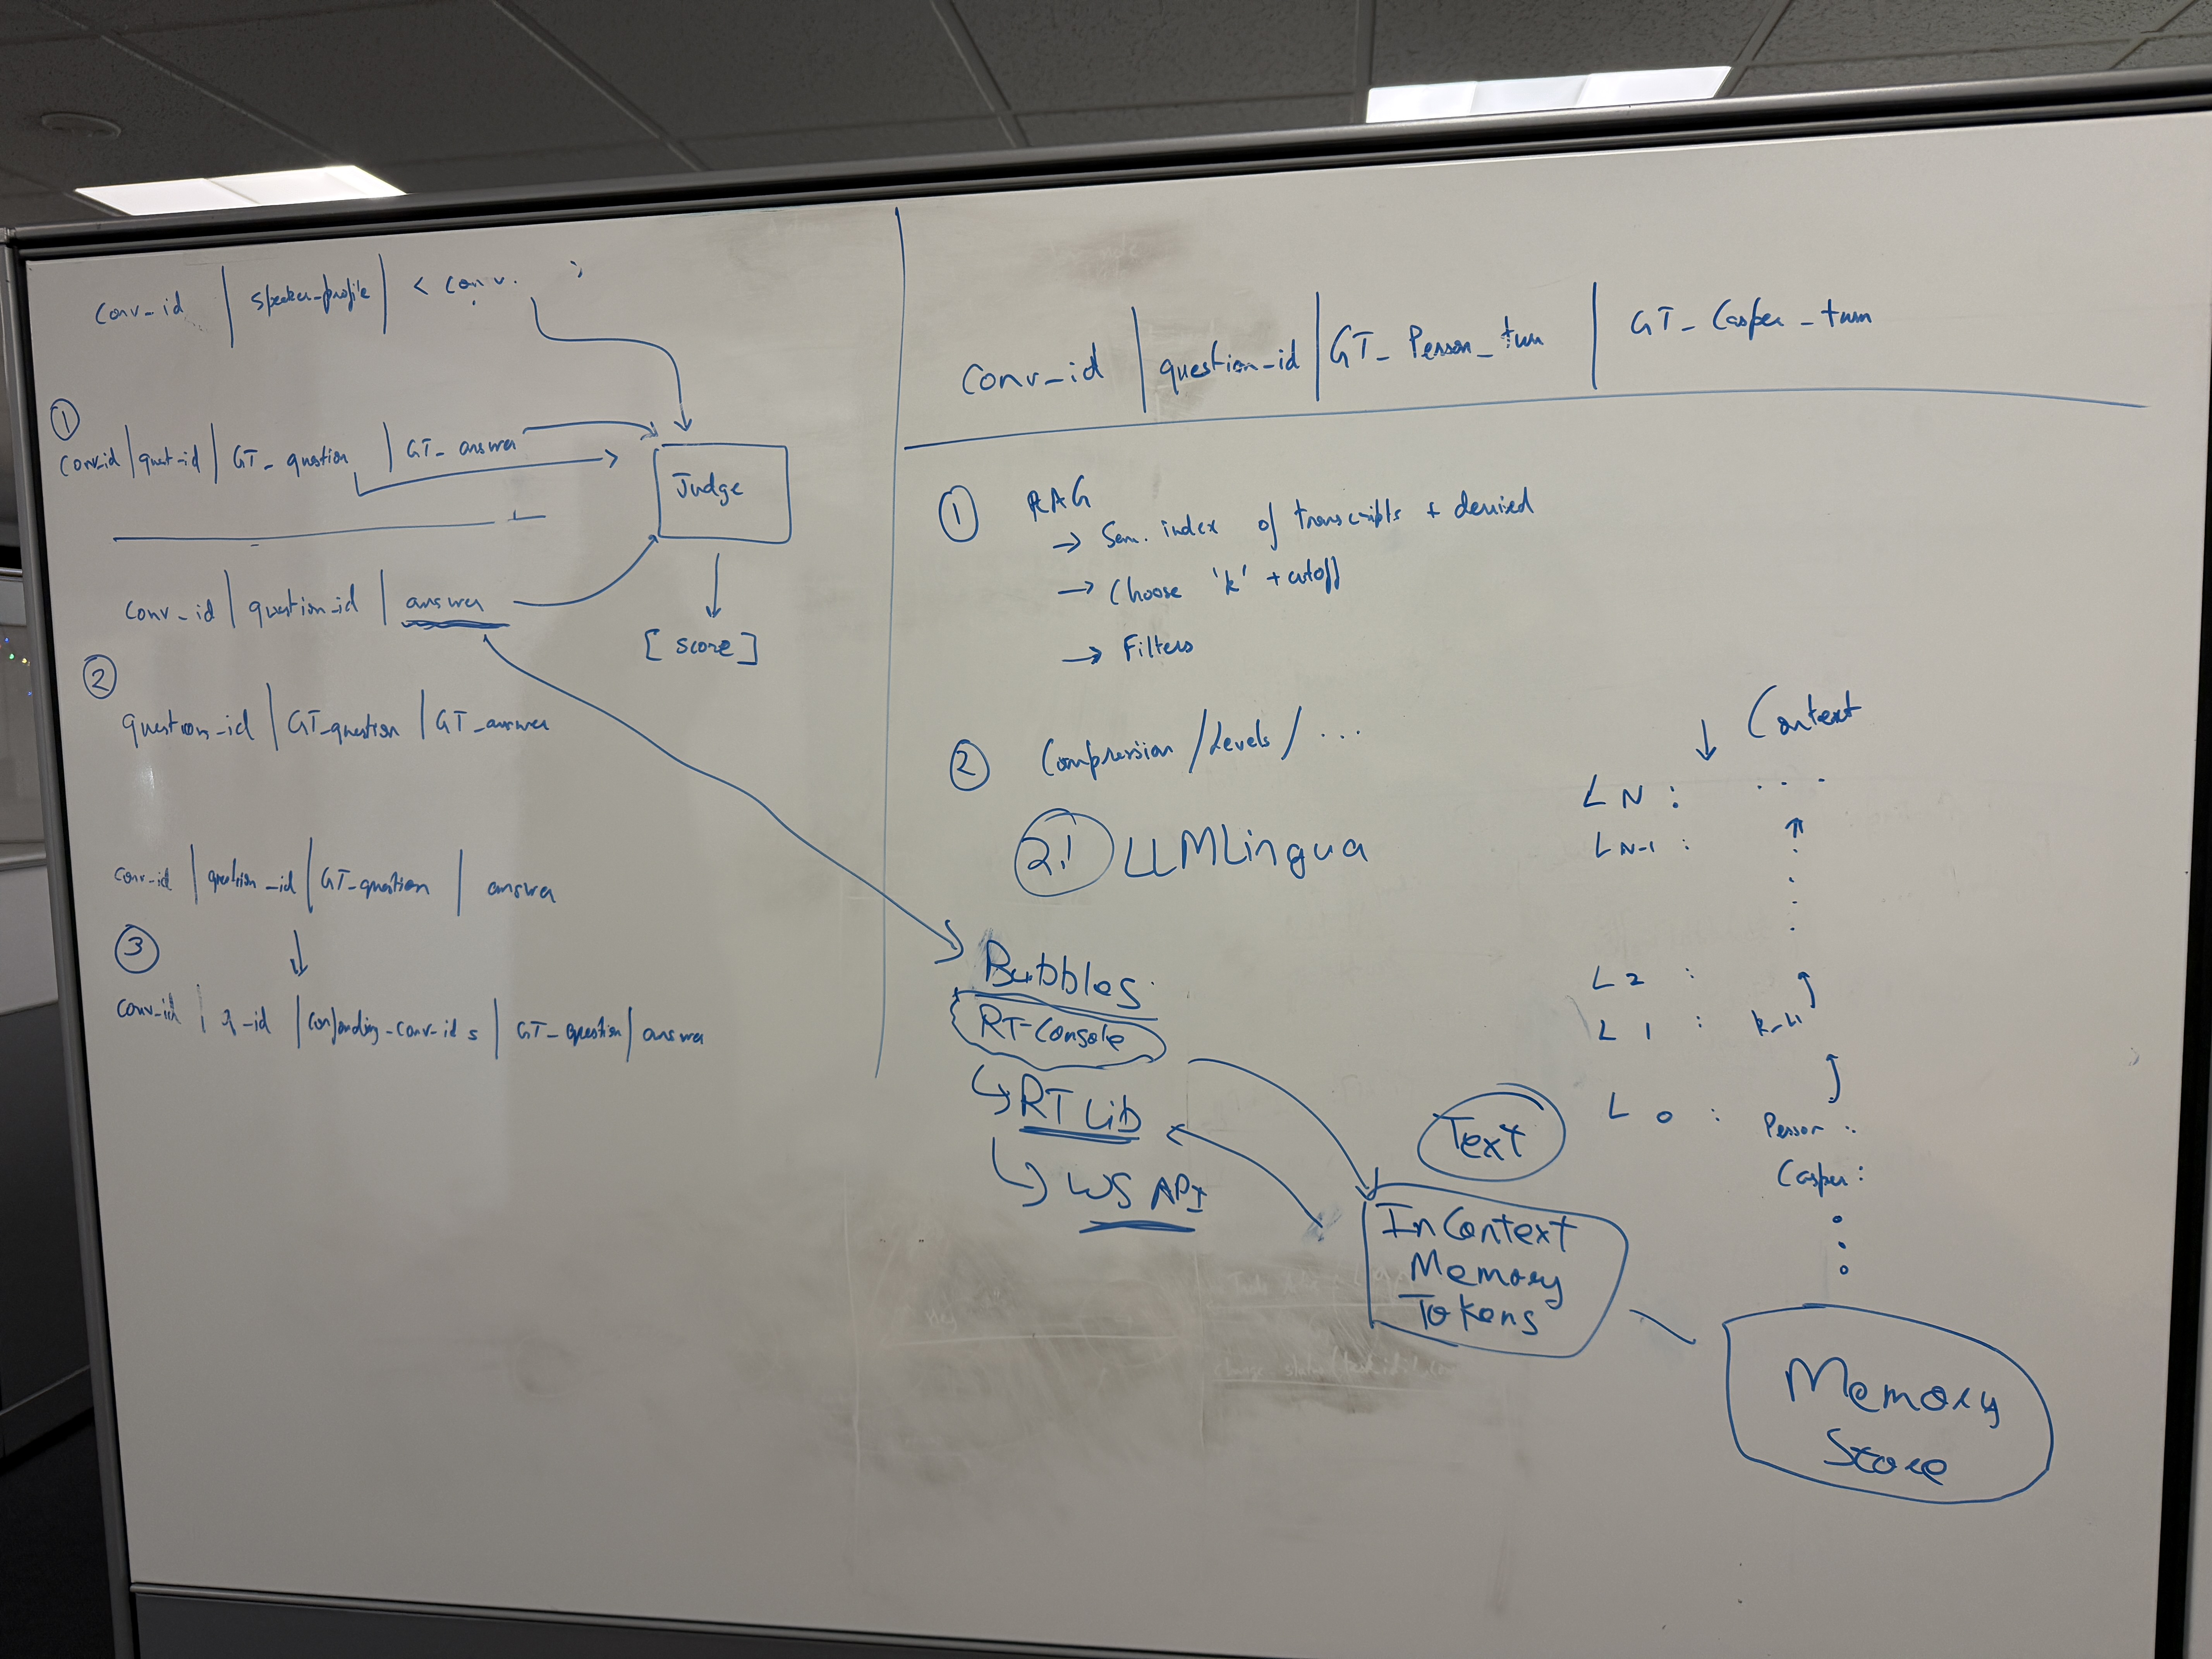 conv_id | speaker_profile | < conv. >
①
conv_id | quest_id | GT_question | GT_answer
Judge
conv_id | question_id | answer
[score]
②
question_id | GT_question | GT_answer
conv_id | question_id | GT_question | answer
③
conv_id | q_id | _conv_ids | GT_question | answer
conv_id | question_id | GT_Person_turn | GT_Casper_turn
① RAG
→ Sem. index of transcripts + derived
→ Choose 'k' + cutoff
→ Filters
② Compression / Levels / ...
2.1 LLMLingua
Bubbles
RT-Console
RT Lib
WS API
↓ Context
LN : ...
LN-1 :
L2 :
L1 :
L0 : Person :
Casper :
Text
InContext
Memory
Tokens
Memory
Store